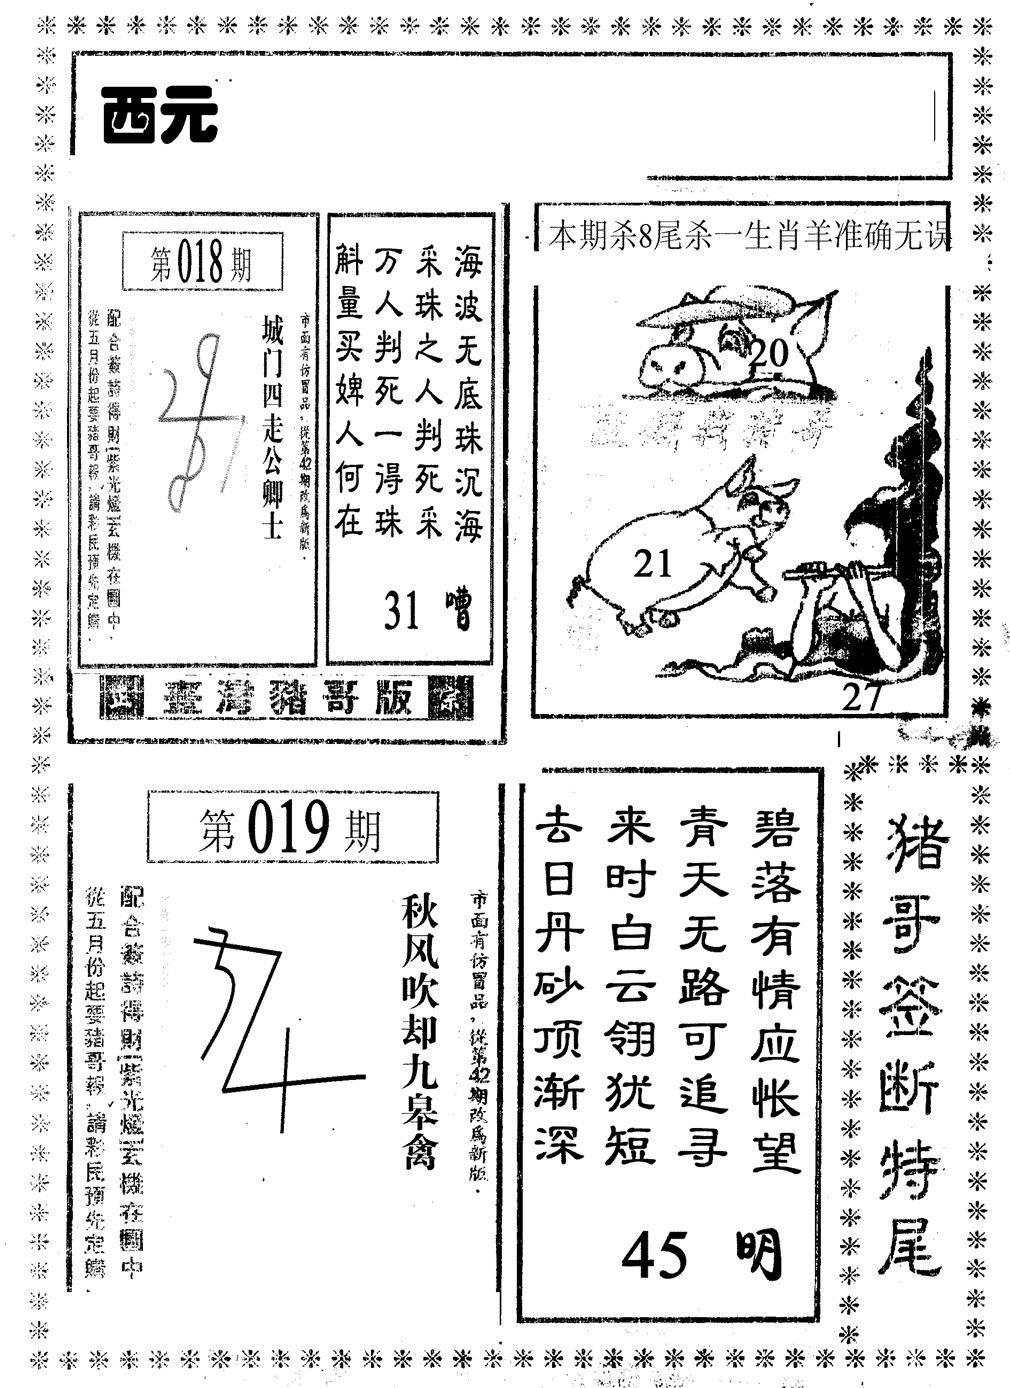 西元
第018期
市面有仿冒品,從第42期改為新版.
城门四走公卿士
配合簽詩得財[紫光燈]玄機在圖中.
從五月份起要豬哥報,請彩民預先定購.
海波无底珠沉海
采珠之人判死采
万人判死一得珠
斛量买婢人何在
31 嘈
臺灣豬哥版
本期杀8尾杀一生肖羊准确无误
20
21
27
第019期
市面有仿冒品,從第42期改為新版.
秋风吹却九皋禽
配合簽詩得財[紫光燈]玄機在圖中
從五月份起要豬哥報,請彩民預先定購.
碧落有情应怅望
青天无路可追寻
来时白云翎犹短
去日丹砂顶渐深
45 明
猪哥签断特尾